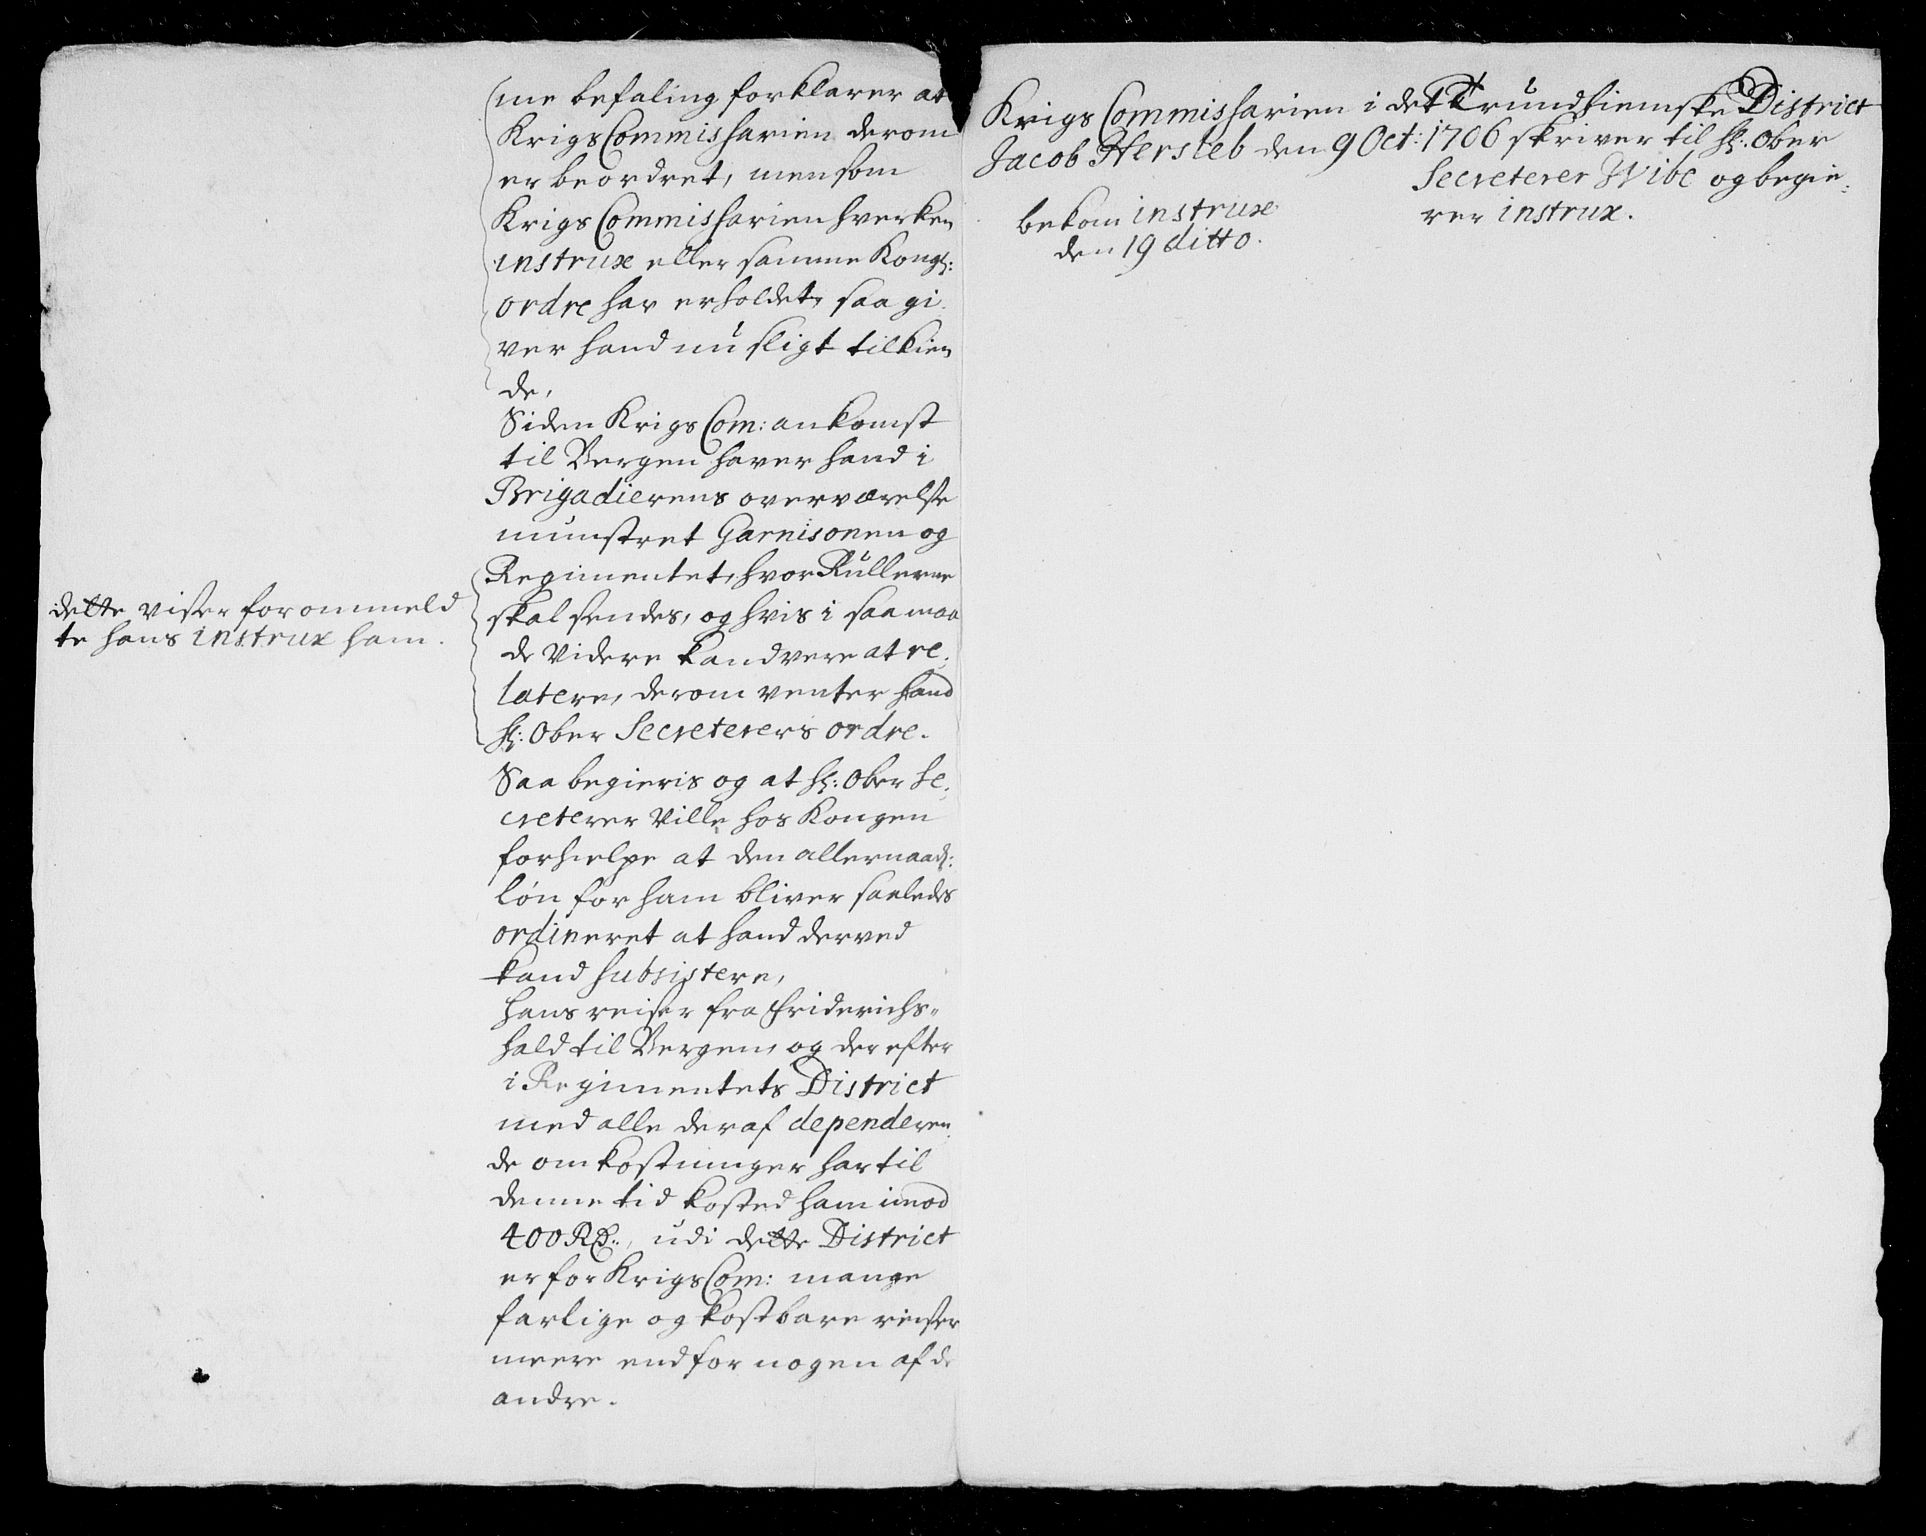 me befaling forklarer at
Krigs Commissarien derom
er beordret, men som
Krigs Commissarien hverken
instrux eller samme Kongl:
ordre har erholdet, saa gi
ver hand nu sligt tilkien
de,
Siden Krigs Com: ankomst
til Bergen haver hand i
Brigadierens overværelse
munstret Garnisonen og
Regimentet, hvor Rullerne
skal sendes, og hvis i saa maa
de videre kand vere at re,
latere, derom venter hand
hl: Ober Secreterers ordre.
dette viser forommeld
te hans instrux ham.
Saa begieris og at hl: Ober Se,
creterer ville hos Kongen
forhielpe at den allernaad:
løn for ham bliver saaledes
ordineret at hand derved
kand subsistere,
hans reiser fra Friderichs„
hald til Bergen, og der efter
i Regimentets District
med alle deraf dependeren
de omkostninger har til
denne tid kosted ham imod
400 Rd:, udi dette District
er for Krigs Com: mange
farlige og kostbare reiser
meere end for nogen af de
andre.
Krigs Commissarien i det Trundhiemske District
Jacob Hersleb den 9 Oct: 1706 skriver til hl: Ober
Secreterer Wibe og begie,
rer instrux.
bekom instrux
den 19 ditto.